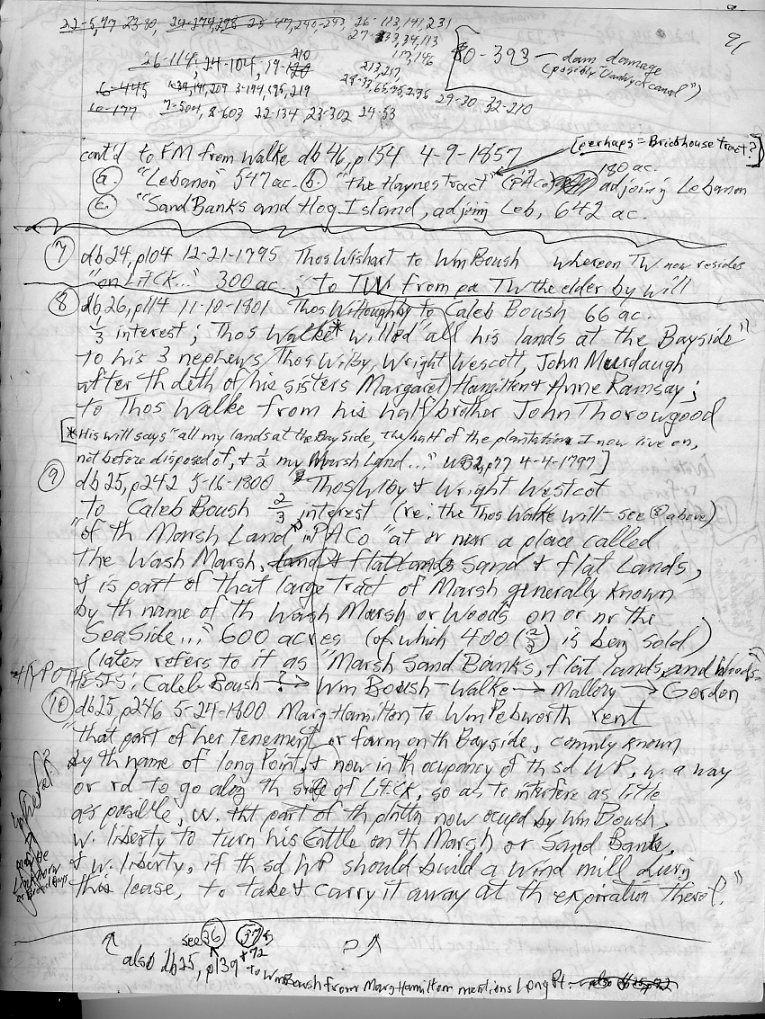 22-5,47 23-90, 24-274,278 25-47,240-243 26-113,141,231
27-33,34,113
117,146
26-114, 24-104, 19-180
210
213,217,
80-393 - dam damage
(possibly "Danbly's canal")
6-445 3-194,195,219
10-177 7-504, 8-603 22-134 23-302 24-53 29-30-32-210
[perhaps = Brickhouse tract?]
cont'd to FM from Walke db46, p154 4-9-1857
(a.) "Lebanon" 547 ac. (b.) "the Haynes tract" (PACo) 180 ac. adjoining Lebanon
(c.) "Sand Banks and Hog Island, adjoing Leb, 642 ac.
(7) db24, p104 12-21-1795 Thos Wishart to Wm Boush whereon TW now resides
"on Lit CK..." 300 ac.; to TW from pa TW the elder by will
(8) db26, p114 11-10-1801 Thos Willoughby to Caleb Boush 66 ac.
1/3 interest; Thos Walke* willed "all his lands at the Bayside"
to his 3 nephews, Thos Wilby, Wright Wescott, John Murdaugh
after th deth of his sisters Margaret Hamilton & Anne Ramsay;
to Thos Walke from his half brother John Thorowgood
[*His will says "all my lands at the Bay Side, the half of the plantation I now live on,
not before disposed of, & 1/2 my Marsh Land..." wb2, p77 4-4-1797]
(9) db25, p242 5-16-1800 Thos Wlby & Wright Westcot
to Caleb Boush 2/3 interest (re: the Thos Walke will - see (8) above)
"of th Marsh Land" in PACo "at or near a place called
the Wash Marsh, land & flat lands Sand & flat Lands,
& is part of that large tract of Marsh generally known
by th name of th Wash Marsh or Woods on or nr the
Seaside..." 600 acres (of which 400 (2/3) is being sold)
(later refers to it as "Marsh Sand Banks, flat lands, and Woods"
HYPOTHESIS: Caleb Boush -?-> Wm Boush - Walke -> Mallory -> Gordon
(10) db25, p246 5-24-1800 Marg Hamilton to Wm Pebworth rent
"that part of her tenement or farm on th Bayside, comnly known
by th name of long Point, & now in th occupancy of th sd WP, w. a way
or rd to go along th side of Lit CK, so as to interfere as little
as possible, w. tht part of th plntn now ocupd by Wm Boush,
w. liberty to turn his Cattle on th Marsh or Sand Banks,
& w. liberty, if th sd WP should build a wind mill durin
this lease, to take & carry it away at th expiration therof."
see (36) (37)
+72
also db25, p139 to Wm Boush from Marg Hamilton mentions Long Pt. - also db25, p22